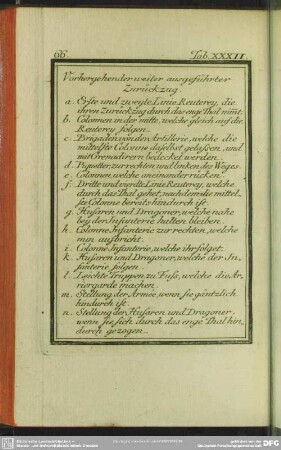 66.
Tab. XXXII
Vorhergehender weiter ausgeführter
Zurückzug.
a. Erste und zweyte Linie Reuterey, die
ihren Zurückzug durch das enge Thal nimt.
b. Colonnen in der mitte, welche gleich auf die
Reuterey folgen.
c. Brigaden von der Artillerie, welche die
mittelste Colonne daselbst gelassen, und
mit Grenadirern bedecket werden.
d. Piquetter, zur rechten und linken des Weges.
e. Colonnen, welche an einander rücken.
f. Dritte und vierdte Linie Reuterey, welche
durch das Thal gehet, nachdem die mittel-
ste Colonne bereits hindurch ist.
g. Husaren und Dragoner, welche nahe
bey der Infanterie halten bleiben.
h. Colonne Infanterie zur rechten, welche
nun aufbricht.
i. Colonne Infanterie, welche ihr folget.
k. Husaren und Dragoner, welche der In-
fanterie folgen.
l. Leichte Truppen zu Fuss, welche die Ar-
riergarde machen.
m. Stellung der Armee, wenn sie gäntzlich
hindurch ist.
n. Stellung der Husaren und Dragoner,
wenn sie sich durch das enge Thal hin-
durch gezogen.